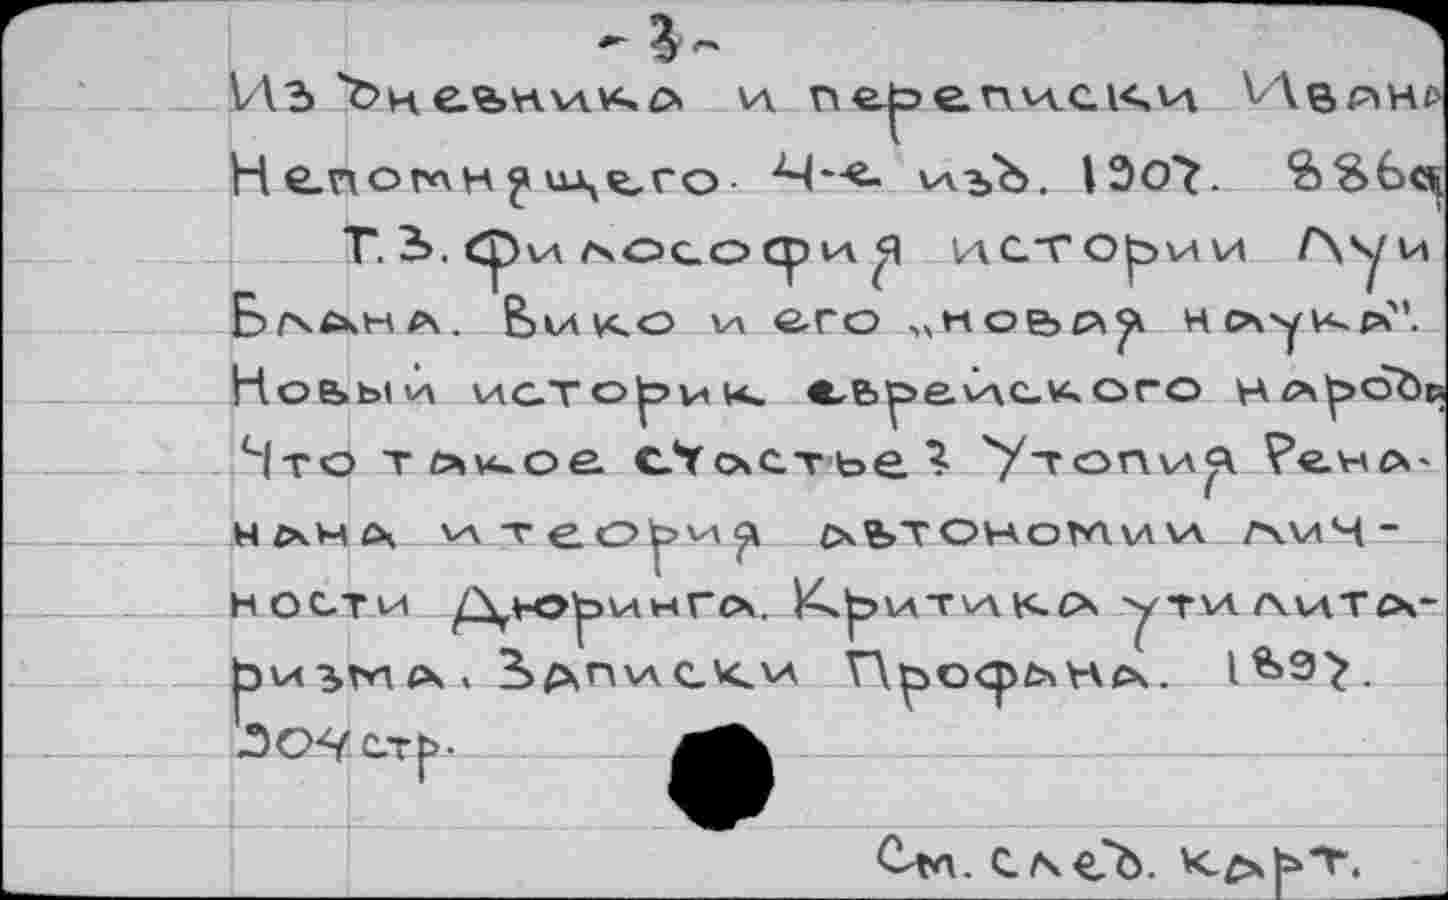 - 3 -
Из дневника и переписки Ивана
Непомнящего. 4-е изд. 1907. 886 ст
Т. 3. Философия истории Луи
Блана. Вико и его „новая наука".
Новый историк еврейского народа
Что такое счастье? Утопия Рена-
нана и теория автономии лич-
ности Дюринга. Критика утилита-
ризма. Записки Профана.
стр.
См. след. карт.